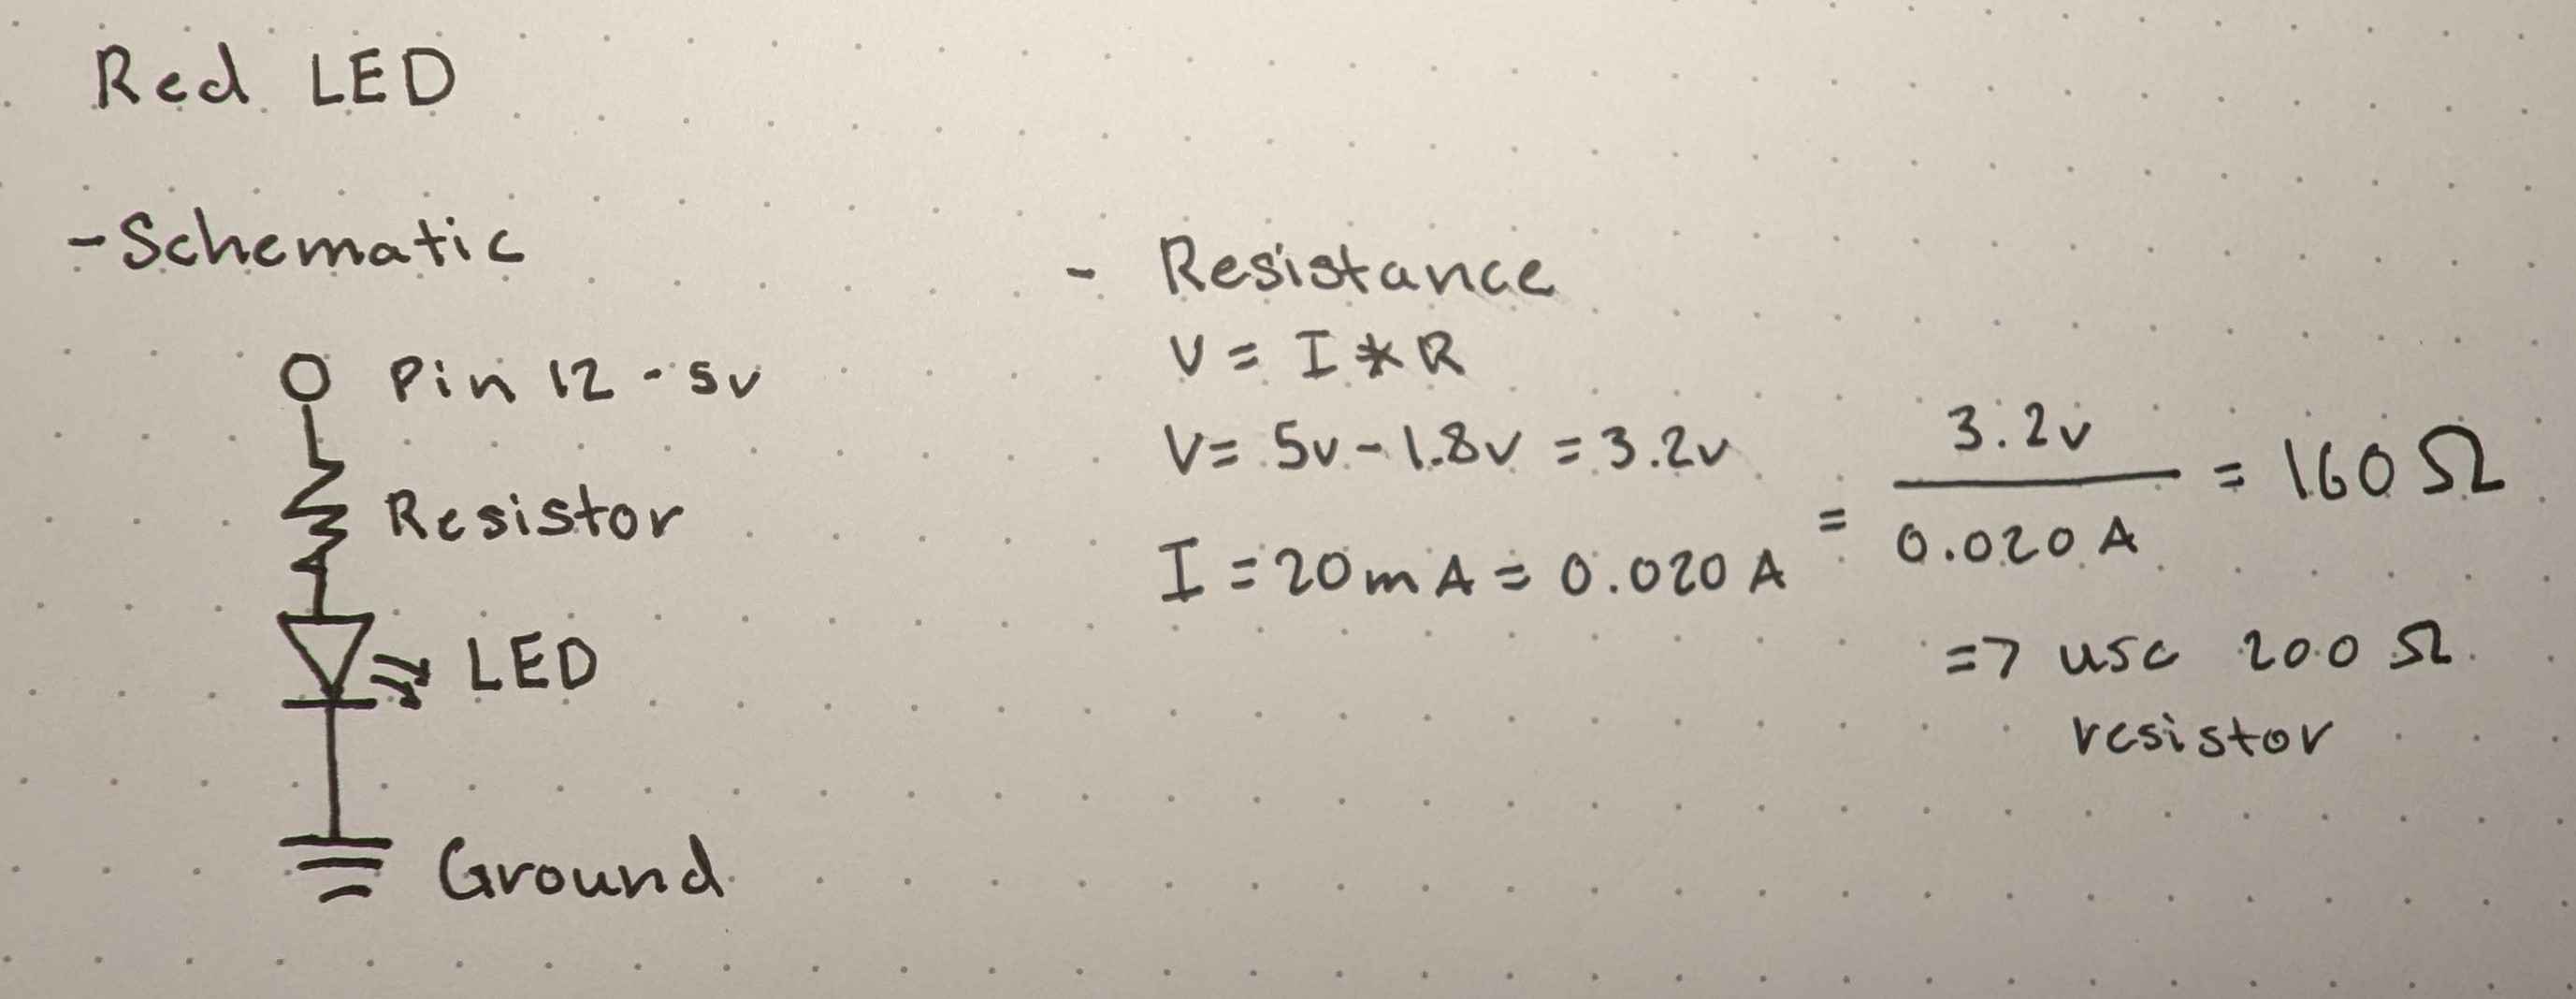 Red LED
-Schematic
Pin 12 - 5v
Resistor
LED
Ground
- Resistance
V = I * R
V = 5v - 1.8v = 3.2v
I = 20mA = 0.020 A
= 3.2v / 0.020 A = 160 Ω
=> use 200 Ω
resistor